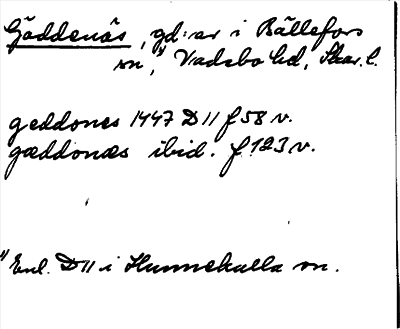 Gäddenäs, gd:ar i Bällefors
sn,¹⁾ Vadsbo hd, Skar. l.
geddones 1447 D 11 f 58 v.
gæddonæs ibid. f 123 v.
¹⁾ Enl. D 11 i Hunnekulla sn.